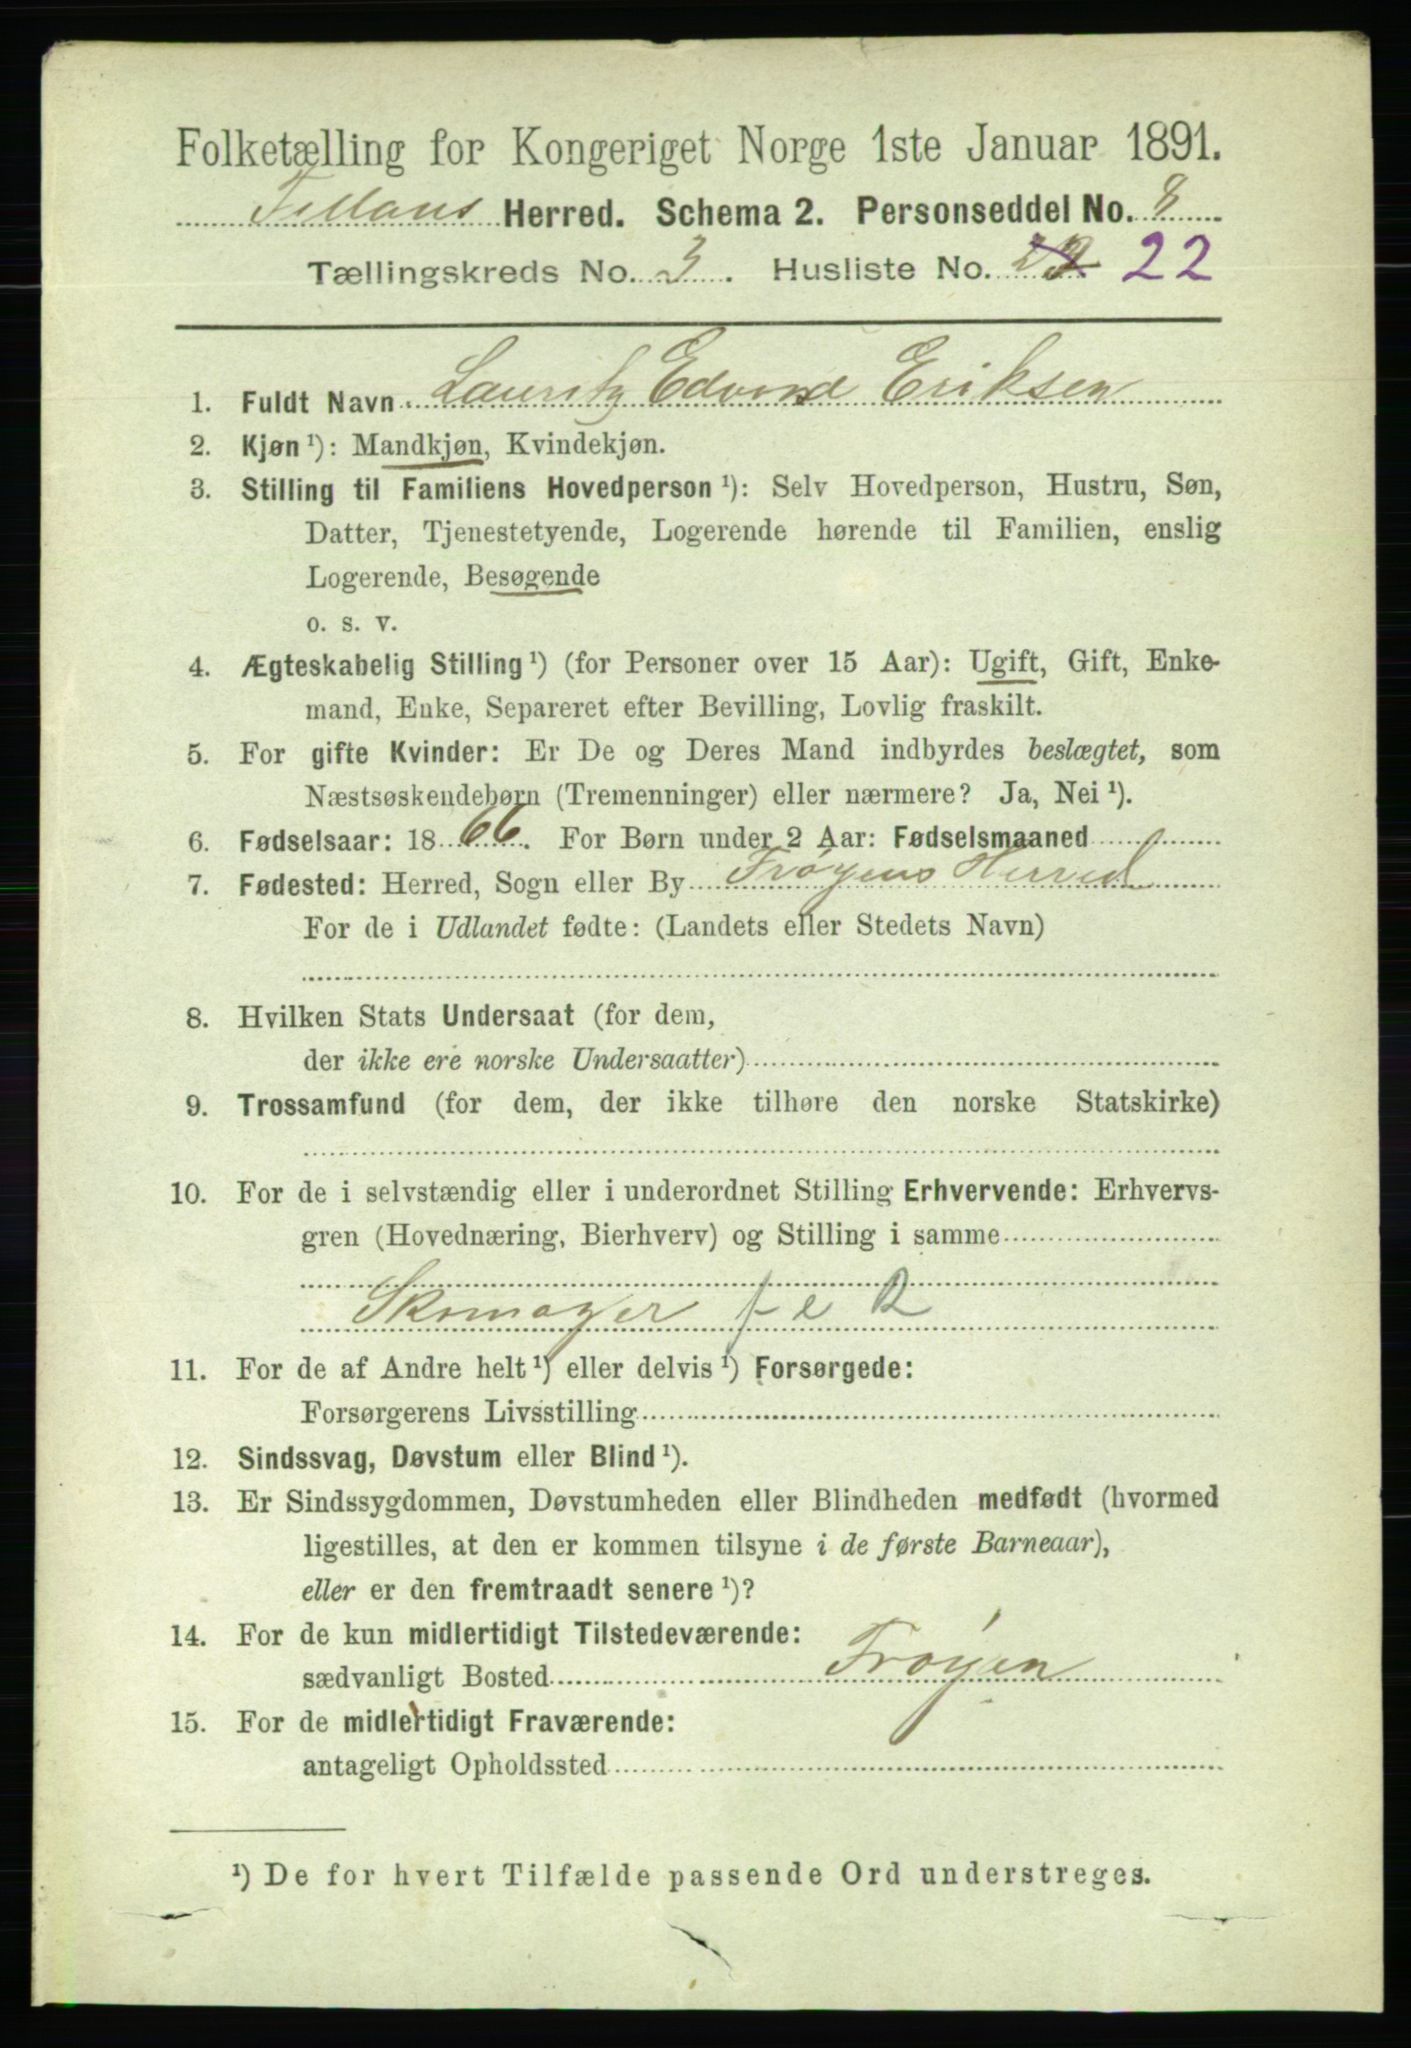 Folketælling for Kongeriget Norge 1ste Januar 1891.
Fillans Herred. Schema 2. Personseddel No. 8
Tællingskreds No. 3. Husliste No. 22
1. Fuldt Navn Lauritz Edvard Eriksen
2. Kjøn ¹): Mandkjøn, Kvindekjøn.
3. Stilling til Familiens Hovedperson ¹): Selv Hovedperson, Hustru, Søn,
Datter, Tjenestetyende, Logerende hørende til Familien, enslig
Logerende, Besøgende
o. s. v.
4. Ægteskabelig Stilling ¹) (for Personer over 15 Aar): Ugift, Gift, Enke-
mand, Enke, Separeret efter Bevilling, Lovlig fraskilt.
5. For gifte Kvinder: Er De og Deres Mand indbyrdes beslægtet, som
Næstsøskendebørn (Tremenninger) eller nærmere? Ja, Nei ¹).
6. Fødselsaar: 1866. For Børn under 2 Aar: Fødselsmaaned
7. Fødested: Herred, Sogn eller By Frøyens Herred
For de i Udlandet fødte: (Landets eller Stedets Navn)
8. Hvilken Stats Undersaat (for dem,
der ikke ere norske Undersaatter)
9. Trossamfund (for dem, der ikke tilhøre den norske Statskirke)
10. For de i selvstændig eller i underordnet Stilling Erhvervende: Erhvervs-
gren (Hovednæring, Bierhverv) og Stilling i samme
Skomager f e R
11. For de af Andre helt ¹) eller delvis ¹) Forsørgede:
Forsørgerens Livsstilling
12. Sindssvag, Døvstum eller Blind ¹).
13. Er Sindssygdommen, Døvstumheden eller Blindheden medfødt (hvormed
ligestilles, at den er kommen tilsyne i de første Barneaar),
eller er den fremtraadt senere ¹)?
14. For de kun midlertidigt Tilstedeværende:
sædvanligt Bosted Frøyen
15. For de midlertidigt Fraværende:
antageligt Opholdssted
¹) De for hvert Tilfælde passende Ord understreges.